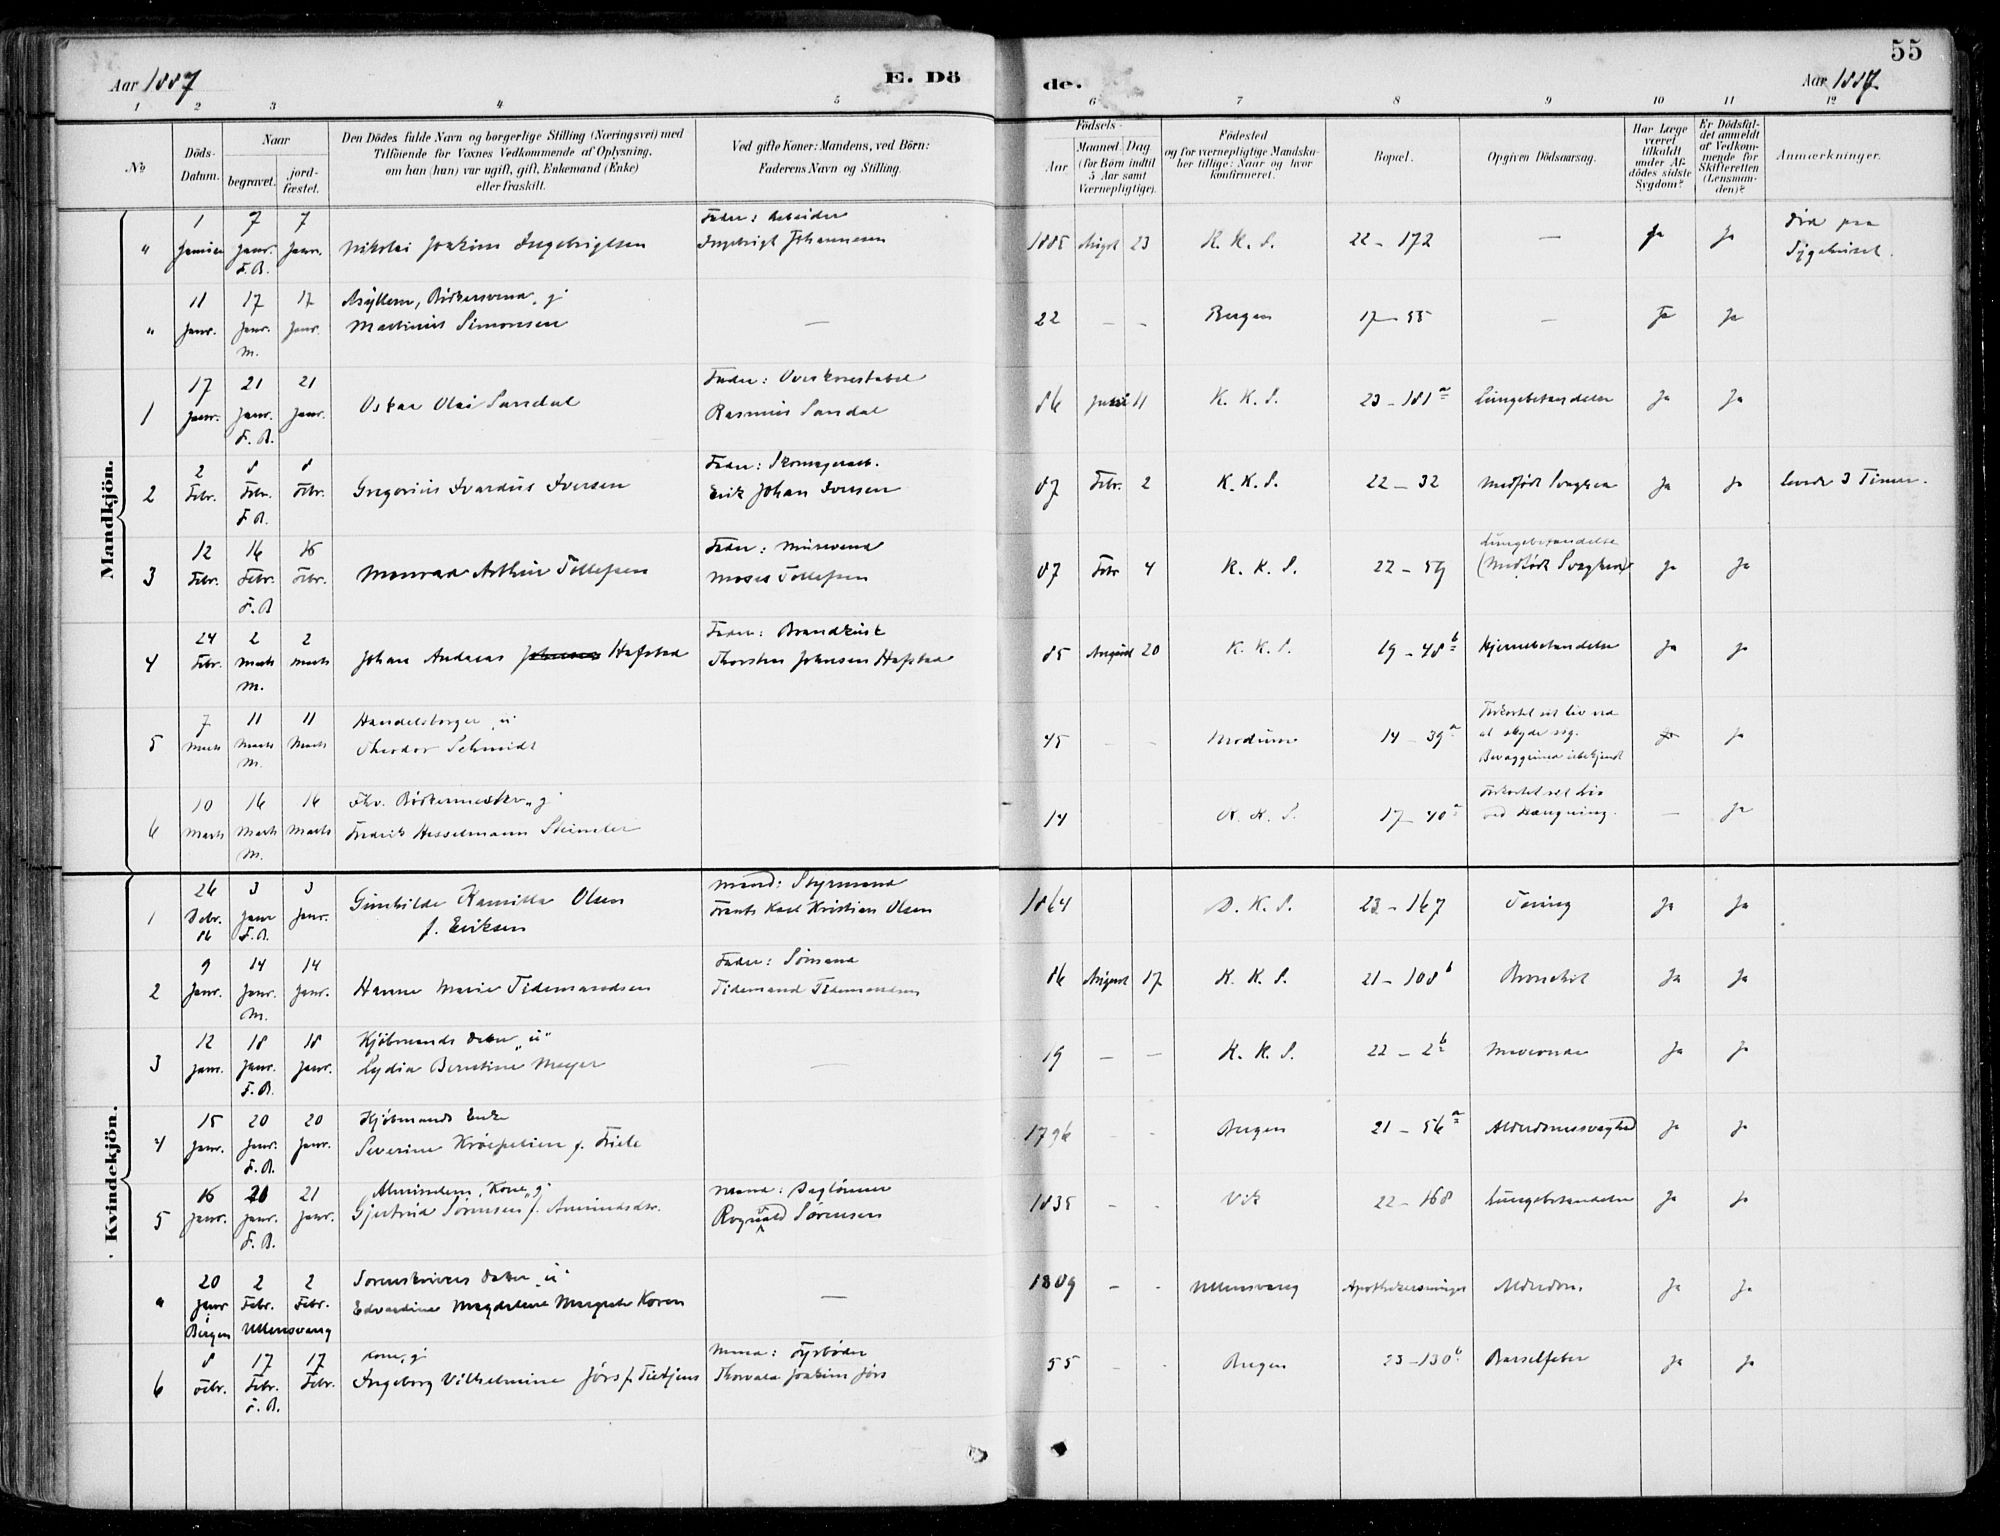 55
Aar 1887
E. Dö
de.
Aar 1887
1 2 3 4 5 6 7 8 9 10 11 12
No
Döds-
Datum.
Naar
begravet.
jord-
fæstet.
Den Dödes fulde Navn og borgerlige Stilling (Næringsvei) med
Tilföiende for Voxnes Vedkommende af Oplysning,
om han (hun) var ugift, gift, Enkemand (Enke)
eller fraskilt.
Ved gifte Koner: Mandens, ved Börn:
Faderens Navn og Stilling.
Födsels-
Aar
Maaned. Dag
(for Börn indtil
5 Aar samt
Værnepligtige).
Födested
og for værnepligtige Mandska-
ber tillige: Naar og hvor
konfirmeret.
Bopæl.
Opgiven Dödsaarsag.
Har Læge
været
tilkaldt
under Af-
dödes sidste
Sygdom?
Er Dödsfal-
det anmeldt
af Vedkom-
mende for
Skifteretten
(Lensman-
den)?
Anmærkninger.
Mandkjön.
1 7 7 Fader: Arbeider
" Januar Janr. Janr. Nikolai Joakim Ingebrigtsen Ingebrigt Johannesen 1885 Augst 23 K. K. S. 22 - 172 — Ja Ja Död paa
F.B. Sygehuset.
11 17 17 Bödkersvend, g
" Janr. Janr. Janr. Martinus Simonsen — 22 - - Bergen 17 - 55 — Ja Ja
M.
17 21 21 Fader: Overkonstabel
1 Janr. Janr. Janr. Oskar Olai Sandal Rasmus Sandal 86 11 K. K. S. 23 - 181 a Lungebetændelse Ja Ja
F.B.
2 8 8 Fader: Skomagerarb.
2 Febr. Febr. Febr. Gregorius Ivardus Iversen Erik Johan Iversen 87 Febr. 2 K. K. S. 22 - 32 Medfödt Svaghed Ja Ja levede 3 Timer.
F.B.
12 16 16 Fader: Mursvend Lungebetændelse
3 Febr. Febr. Febr. Monrad Arthur Tollefsen Moses Tollefsen 87 Febr 4 K. K. S. 22 - 59 (Medfödt Svaghed) Ja Ja
F.B.
24 2 2 Fader: Brandkusk
4 Febr. Marts Marts Johan Andreas Johnsen Hafstad Thorsten Johnsen Hafstad 85 August 20 K. K. S. 19 - 48 b Hjernebetændelse Ja Ja
M.
7 11 11 Handelsborger, u Forkortet sit Liv ved
5 Marts Marts Marts Theodor Schmidt 45 - - Modum 14 - 39 a at skyde sig. Ja Ja
M. Bevæggrund ubekjendt
10 16 16 Fhv. Bödkermester, g Forkortet sit Liv
6 Marts Marts Marts Fredrik Hesselmann 14 K. K. S. 17 - 40 a ved Hængning. — Ja
M.
Kvindekjön.
26 3 3 Gunhilde Kamilla Olsen Mand: Styrmand
1 Debr. Janr Janr. f. Eriksen Frants Karl Kristian Olsen 1864 D. K. S. 23 - 167 Tæring Ja Ja
86 F.B.
9 14 14 Fader: Sömand
2 Janr. Janr. Janr. Hanne Marie Tidemandsen Tidemand Tidemandsen 86 August 17 K. K. S. 21 - 108 b Bronchit Ja Ja
M.
12 18 18 Kjöbmands Datter, u
3 Janr. Janr. Janr. Lydia Berntine Meyer — 19 - - K. K. S. 22 - 2 b Mavesaar Ja Ja
F.B.
15 20 20 Kjöbmands Enke
4 Janr. Janr. Janr. Severine f. Friele 1796 - - Bergen 21 - 56 a Alderdomssvaghed Ja Ja
F.B.
16 21 21 Almisselem, Kone, g Mand: Daglönner
5 Janr. Janr. Janr. Gjertrud Sörensen f. Amundsdtr. Rognvald Sörensen 1835 - - Vik 22 - 168 Lungebetændelse Ja Ja
F.B.
20 2 2 Sorenskrivers Datter, u
" Janr Febr. Febr. Edvardine Magdalene Margrete Koren — 1809 - - Ullensvang Alderdom. Ja Ja
Bergen Ullensvang
8 17 17 Kone, g Mand: Fyrböder
6 Febr. Febr. Febr. Ingeborg Vilhelmine Jörs f. Tietjens Thorvald Joakim Jörs 55 - - Bergen 23 - 130 b Barselfeber Ja Ja
F.B.